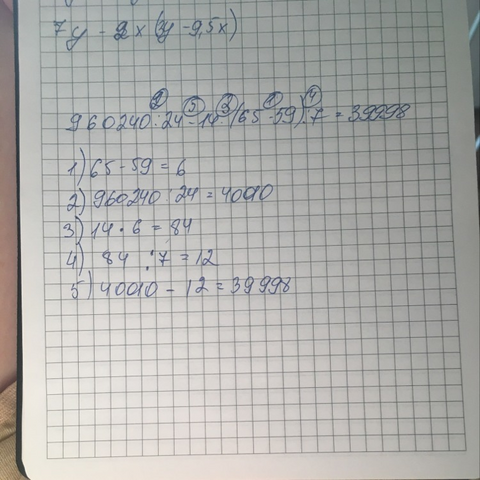 7y - 2x(3y - 9,5x)
② ⑤ ③ ① ④
960240 : 24 - 14 · (65 - 59) : 7 = 39998
1) 65 - 59 = 6
2) 960240 : 24 = 40010
3) 14 · 6 = 84
4) 84 : 7 = 12
5) 40010 - 12 = 39998